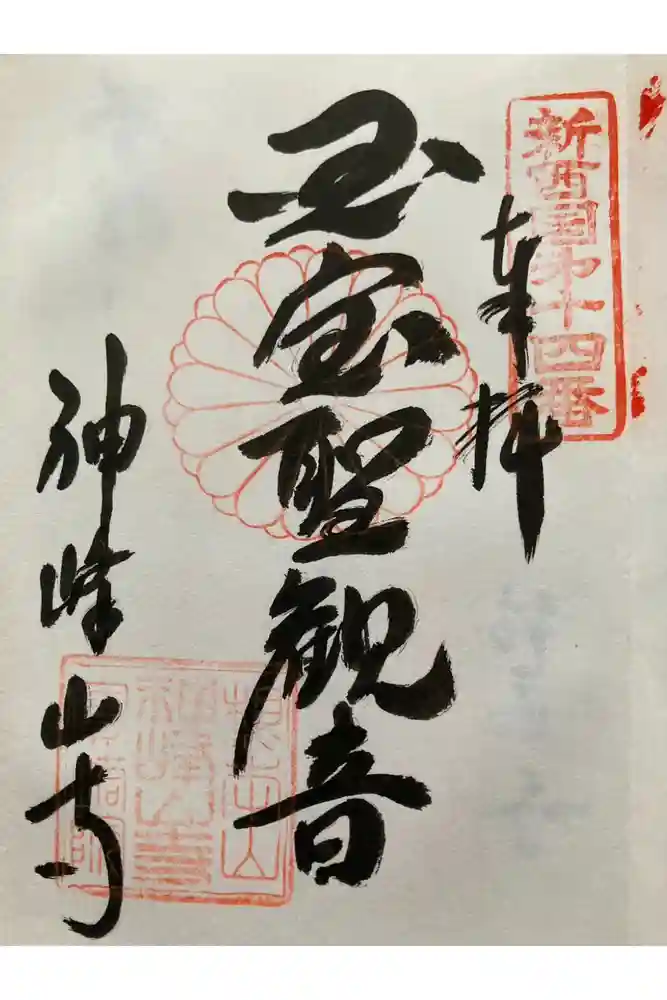 新西国第十四番
奉拝
玉宝聖観音
神峰山寺